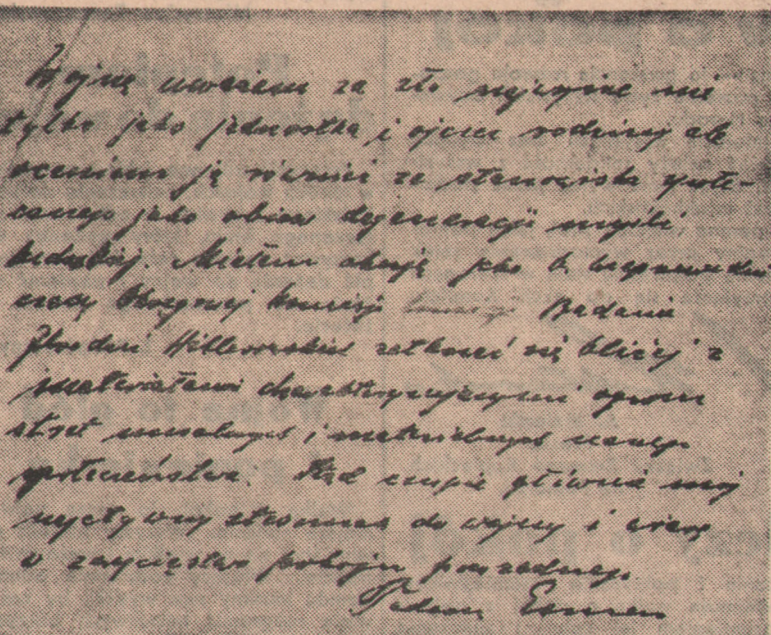 Wojnę uważam za zło najwyższe nie
tylko jako jednostka i ojciec rodziny ale
oceniam ją również ze stanowiska społe-
cznego jako obraz degeneracji myśli
ludzkiej. Miałem okazję jako b.
Okręgowej Komisji Badania
Zbrodni Hitlerowskich zetknąć się bliżej z
materiałami charakteryzującymi ogrom
strat moralnych i materialnych naszego
społeczeństwa. Stąd czepie głównie mój
negatywny stosunek do wojny i wiarę
w zwycięstwo pokoju